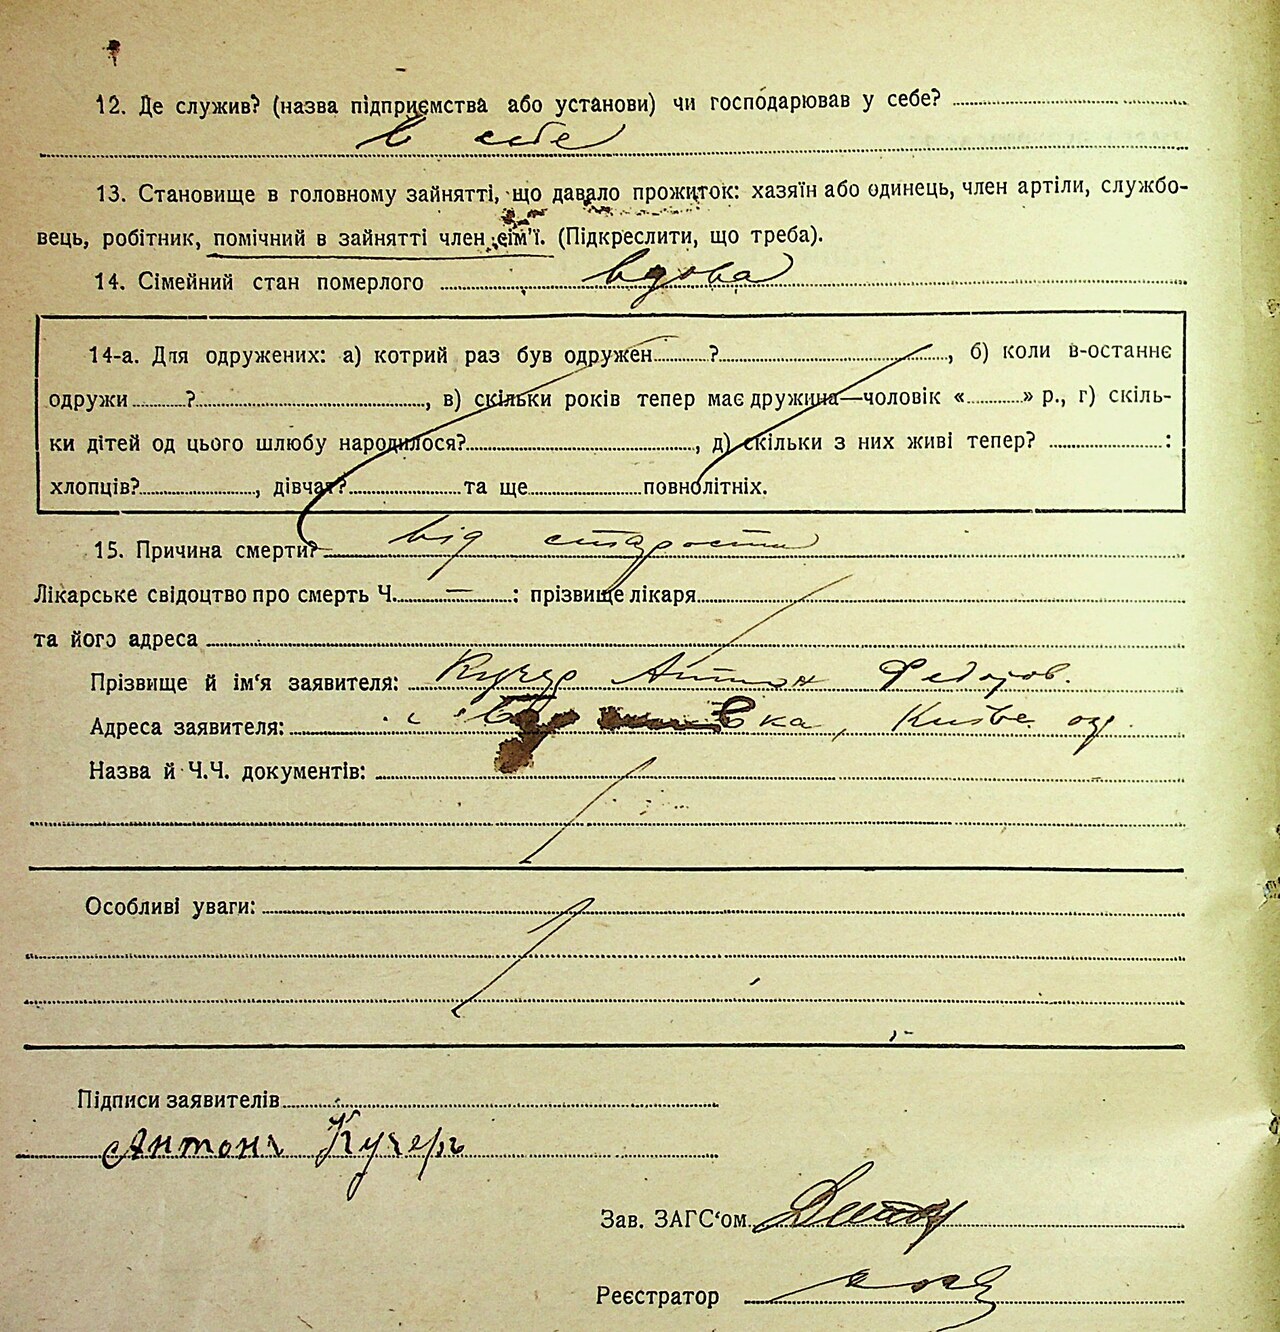 12. Де служив? (назва підприємства або установи) чи господарював у себе?
в себе
13. Становище в головному зайнятті, що давало прожиток: хазяїн або одинець, член артіли, службо-
вець, робітник, помічний в зайнятті член сім'ї. (Підкреслити, що треба).
14. Сімейний стан померлого вдова
14-а. Для одружених: а) котрий раз був одружен ? , б) коли в-останнє
одружи ? , в) скільки років тепер має дружина—чоловік « » р., г) скіль-
ки дітей од цього шлюбу народилося? , д) скільки з них живі тепер? :
хлопців? , дівчат? та ще повнолітніх.
15. Причина смерти? від старости
Лікарське свідоцтво про смерть Ч. — : прізвище лікаря
та його адреса
Прізвище й ім'я заявителя: Кучер Антон Федоров.
Адреса заявителя: с.
Назва й Ч.Ч. документів:
Особливі уваги:
Підписи заявителів
Антонъ Кучеръ
Зав. ЗАГС'ом
Реєстратор